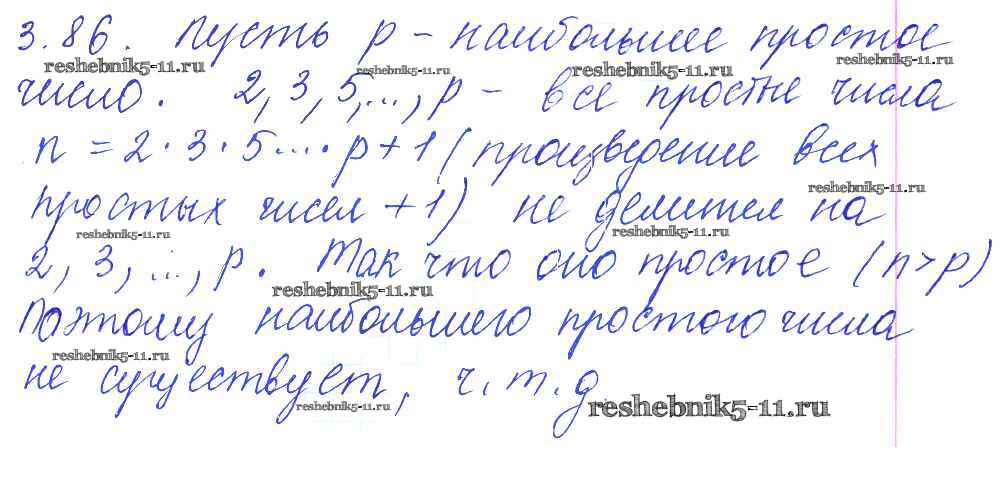 3.86. Пусть p – наибольшее простое
reshebnik5-11.ru reshebnik5-11.ru reshebnik5-11.ru reshebnik5-11.ru
число. 2, 3, 5,..., p – все простые числа
n = 2 · 3 · 5 ... · p + 1 (произведение всех
reshebnik5-11.ru
простых чисел + 1) не делител на
reshebnik5-11.ru reshebnik5-11.ru
2, 3, ..., p. Так что оно простое (n > p)
reshebnik5-11.ru
Поэтому наибольшего простого числа
reshebnik5-11.ru
не существует, ч.т.д
reshebnik5-11.ru reshebnik5-11.ru